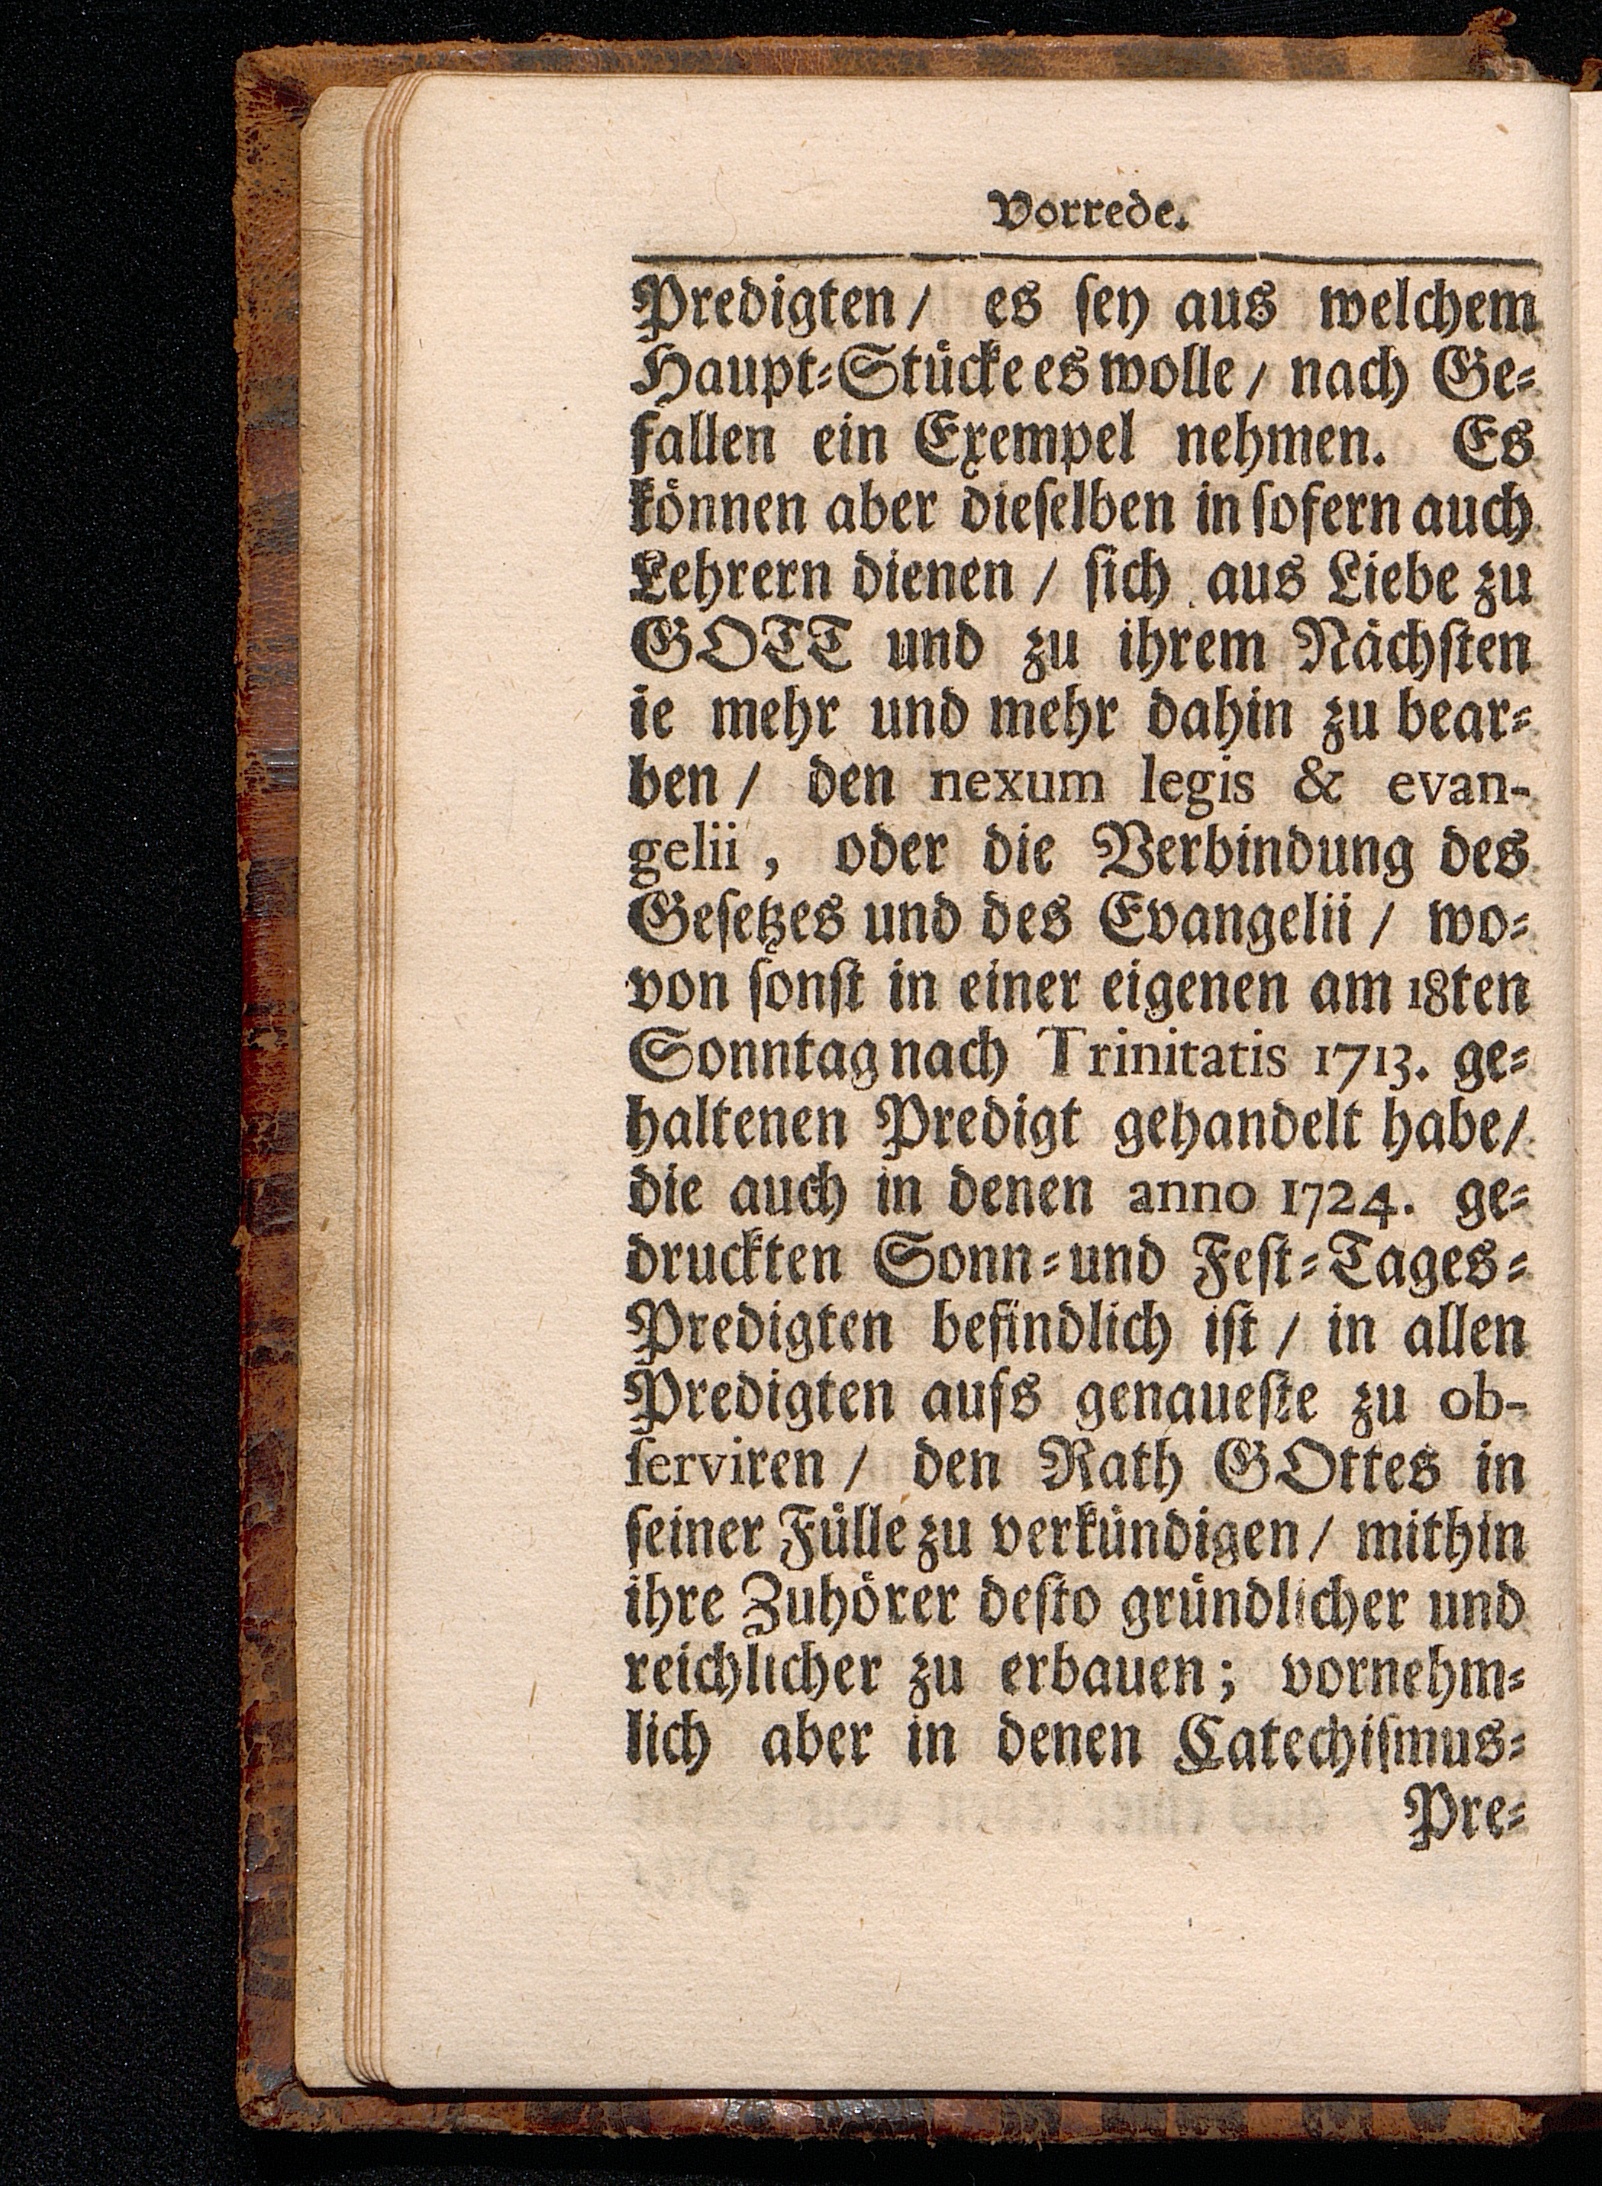 Vorrede.
Predigten/ es ſey aus welchem
Haupt⸗Stücke es wolle/ nach Ge⸗
fallen ein Exempel nehmen. Es
können aber dieſelben in ſofern auch
Lehrern dienen / ſich aus Liebe zu
GOTT und zu ihrem Nächſten
ie mehr und mehr dahin zu bear⸗
ben / den nexum legis & evan-
gelii, oder die Verbindung des
Geſetzes und des Evangelii / wo⸗
von ſonſt in einer eigenen am 18ten
Sonntag nach Trinitatis 1713. ge⸗
haltenen Predigt gehandelt habe/
die auch in denen anno 1724. ge⸗
druckten Sonn⸗und Feſt⸗Tages⸗
Predigten befindlich iſt / in allen
Predigten aufs genaueſte zu ob-
ſerviren / den Rath GOttes in
ſeiner Fülle zu verkündigen / mithin
ihre Zuhörer deſto gründlicher und
reichlicher zu erbauen; vornehm⸗
lich aber in denen Catechiſmus⸗
Pre⸗